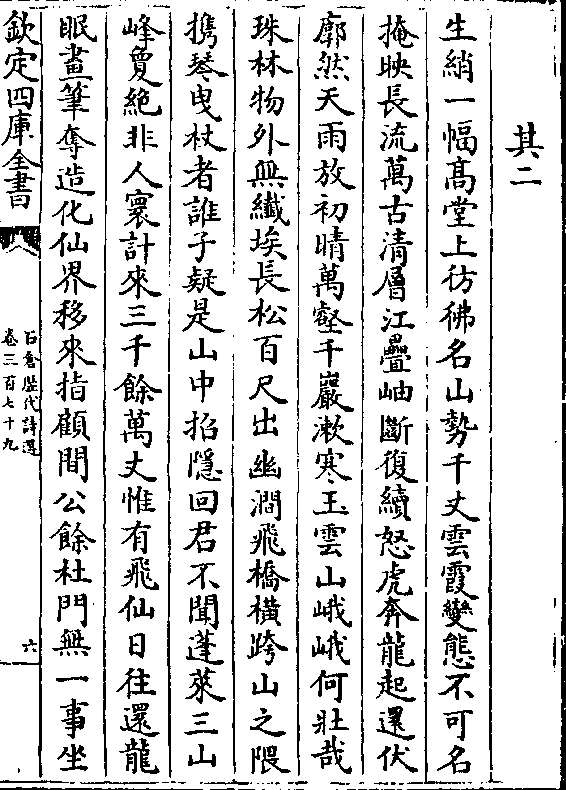 其二
生綃一幅髙堂上彷彿名山勢千丈雲霞變態不可名
掩映長流萬古清層江疊岫斷復續怒虎奔龍起還伏
廓然天雨放初晴萬壑千巖漱寒玉雲山峨峨何壯哉
珠林物外無纖埃長松百尺出幽澗飛橋橫跨山之隈
携琴曳杖者誰子疑是山中招隱回君不聞蓬萊三山
峰敻絶非人寰計來三千餘萬丈惟有飛仙日往還龍
眠畫筆奪造化仙界移來指顧間公餘杜門無一事坐
欽定四庫全書
石倉歴代詩選
卷三百七十九
六